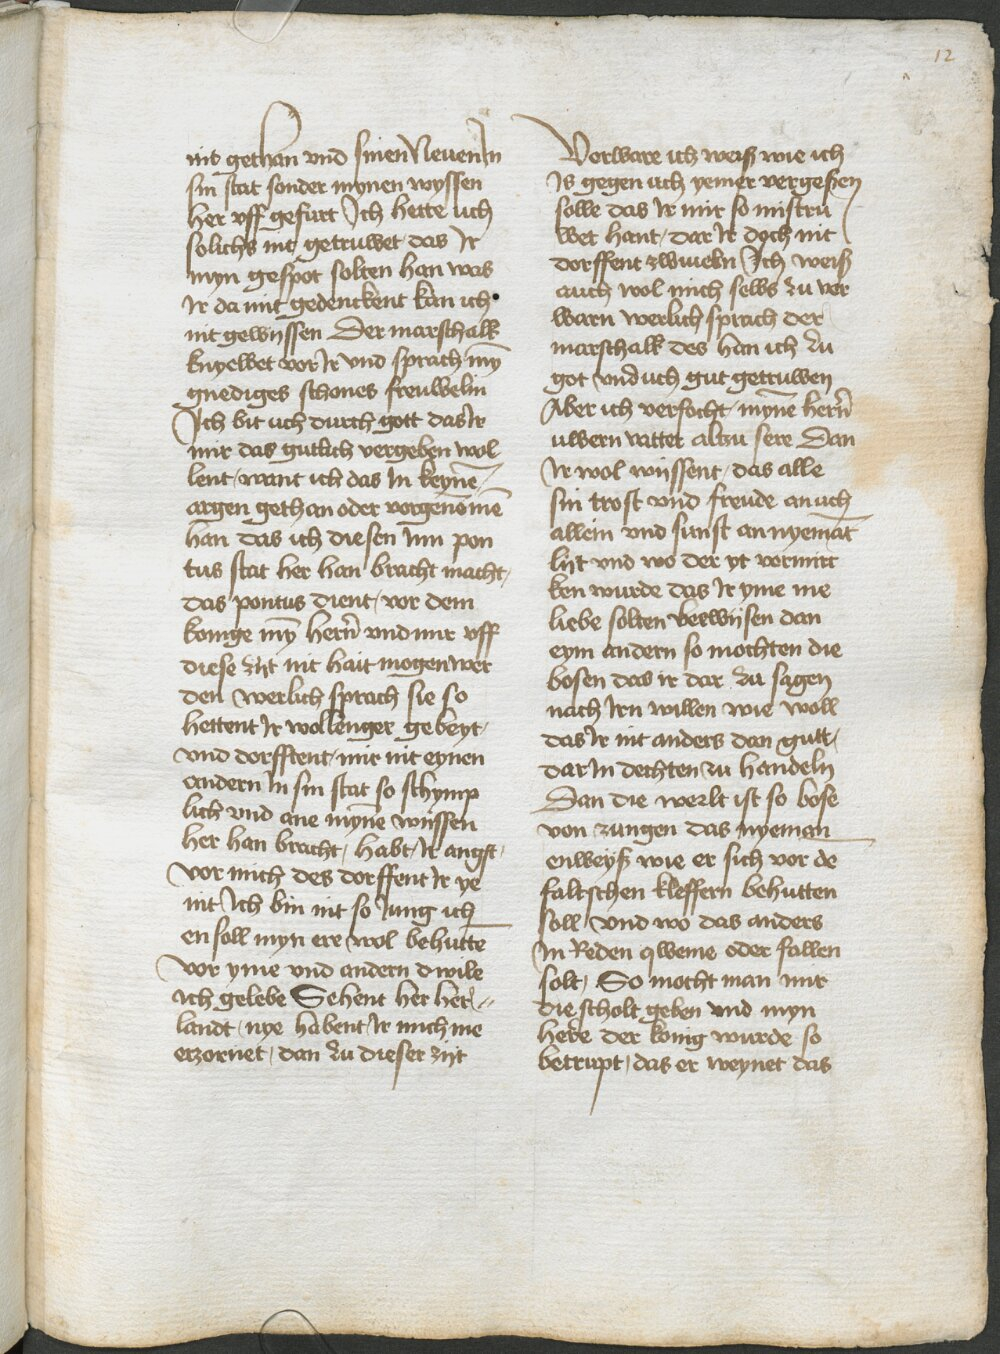 12
nit gethan vnd sinen Neuen In
sin stat sonder mynen wyssen
her vff gefurt Ich hette uch
solichs nit getruwet das Ir
myn gespot solten han was
Ir da mit gedenckent kan ich
nit gewyssen Der marschalk
knyewet vor Ir vnd sprach mȳ
gnediges schones freuwelin
Ich bit uch durch gott das Ir
mir das gutlich vergeben wol
lent / want ich das In keynē
argen gethan oder vorgenomē
han das ich diesen Inn pon
tus stat her han bracht macht /
das pontus dient / vor dem
konige mȳ hern̄ vnd mir vff
diese zijt nit hait mogen wer
den werlich sprach sie so
hettent Ir wol lenger gebeyt /
vnd dorfftent / mir nit eynen
andern In sin stat so schymp
lich vnd ane mynē wijssen
her han bracht / habt / Ir angst /
vor mich des dorffent Ir ye
nit Ich bin nit so Jung ich
en soll myn ere wol behuttē
vor yme vnd andern dwile
ich gelebe Sehent her her /
landt / nye habent / Ir mich me
erzornet / dan zu dieser zijt
Vorware ich weiß wie ich
Is gegen uch yemer vergeßen
solle das Ir mir so mistru
wet hant / dar Ir doch nit
dorffent zwiueln Ich weiß
auch wol mich selbs zu ver
warn werlich sprach der
marschalk des han ich zu
got vnd uch gut getruwen
Aber ich verfocht / mynē hern̄
uwern vatter alzu sere Dan
Ir wol wijssent / das alle
sin trost vnd freude an uch
allein vnd sunst an nyemāt
lijt vnd wo der yt vormirc
ken wurde das Ir yme me
liebe solten bewijsen dan
eym andern so mochten die
bosen das ir dar zu sagen
nach Irn willen wie woll
das Ir nit anders dan gutt /
dar In dechten zu handeln
Dan die werlt ist so bose
von zungen das nyeman
enweyß wie er sich vor de
faltschen kleffern behutten
soll / vnd wo das anders
In Reden qweme oder fallen
solt / So mocht man mir
die scholt geben vnd myn
here der konig wurde so
betrupt / das er weynet das